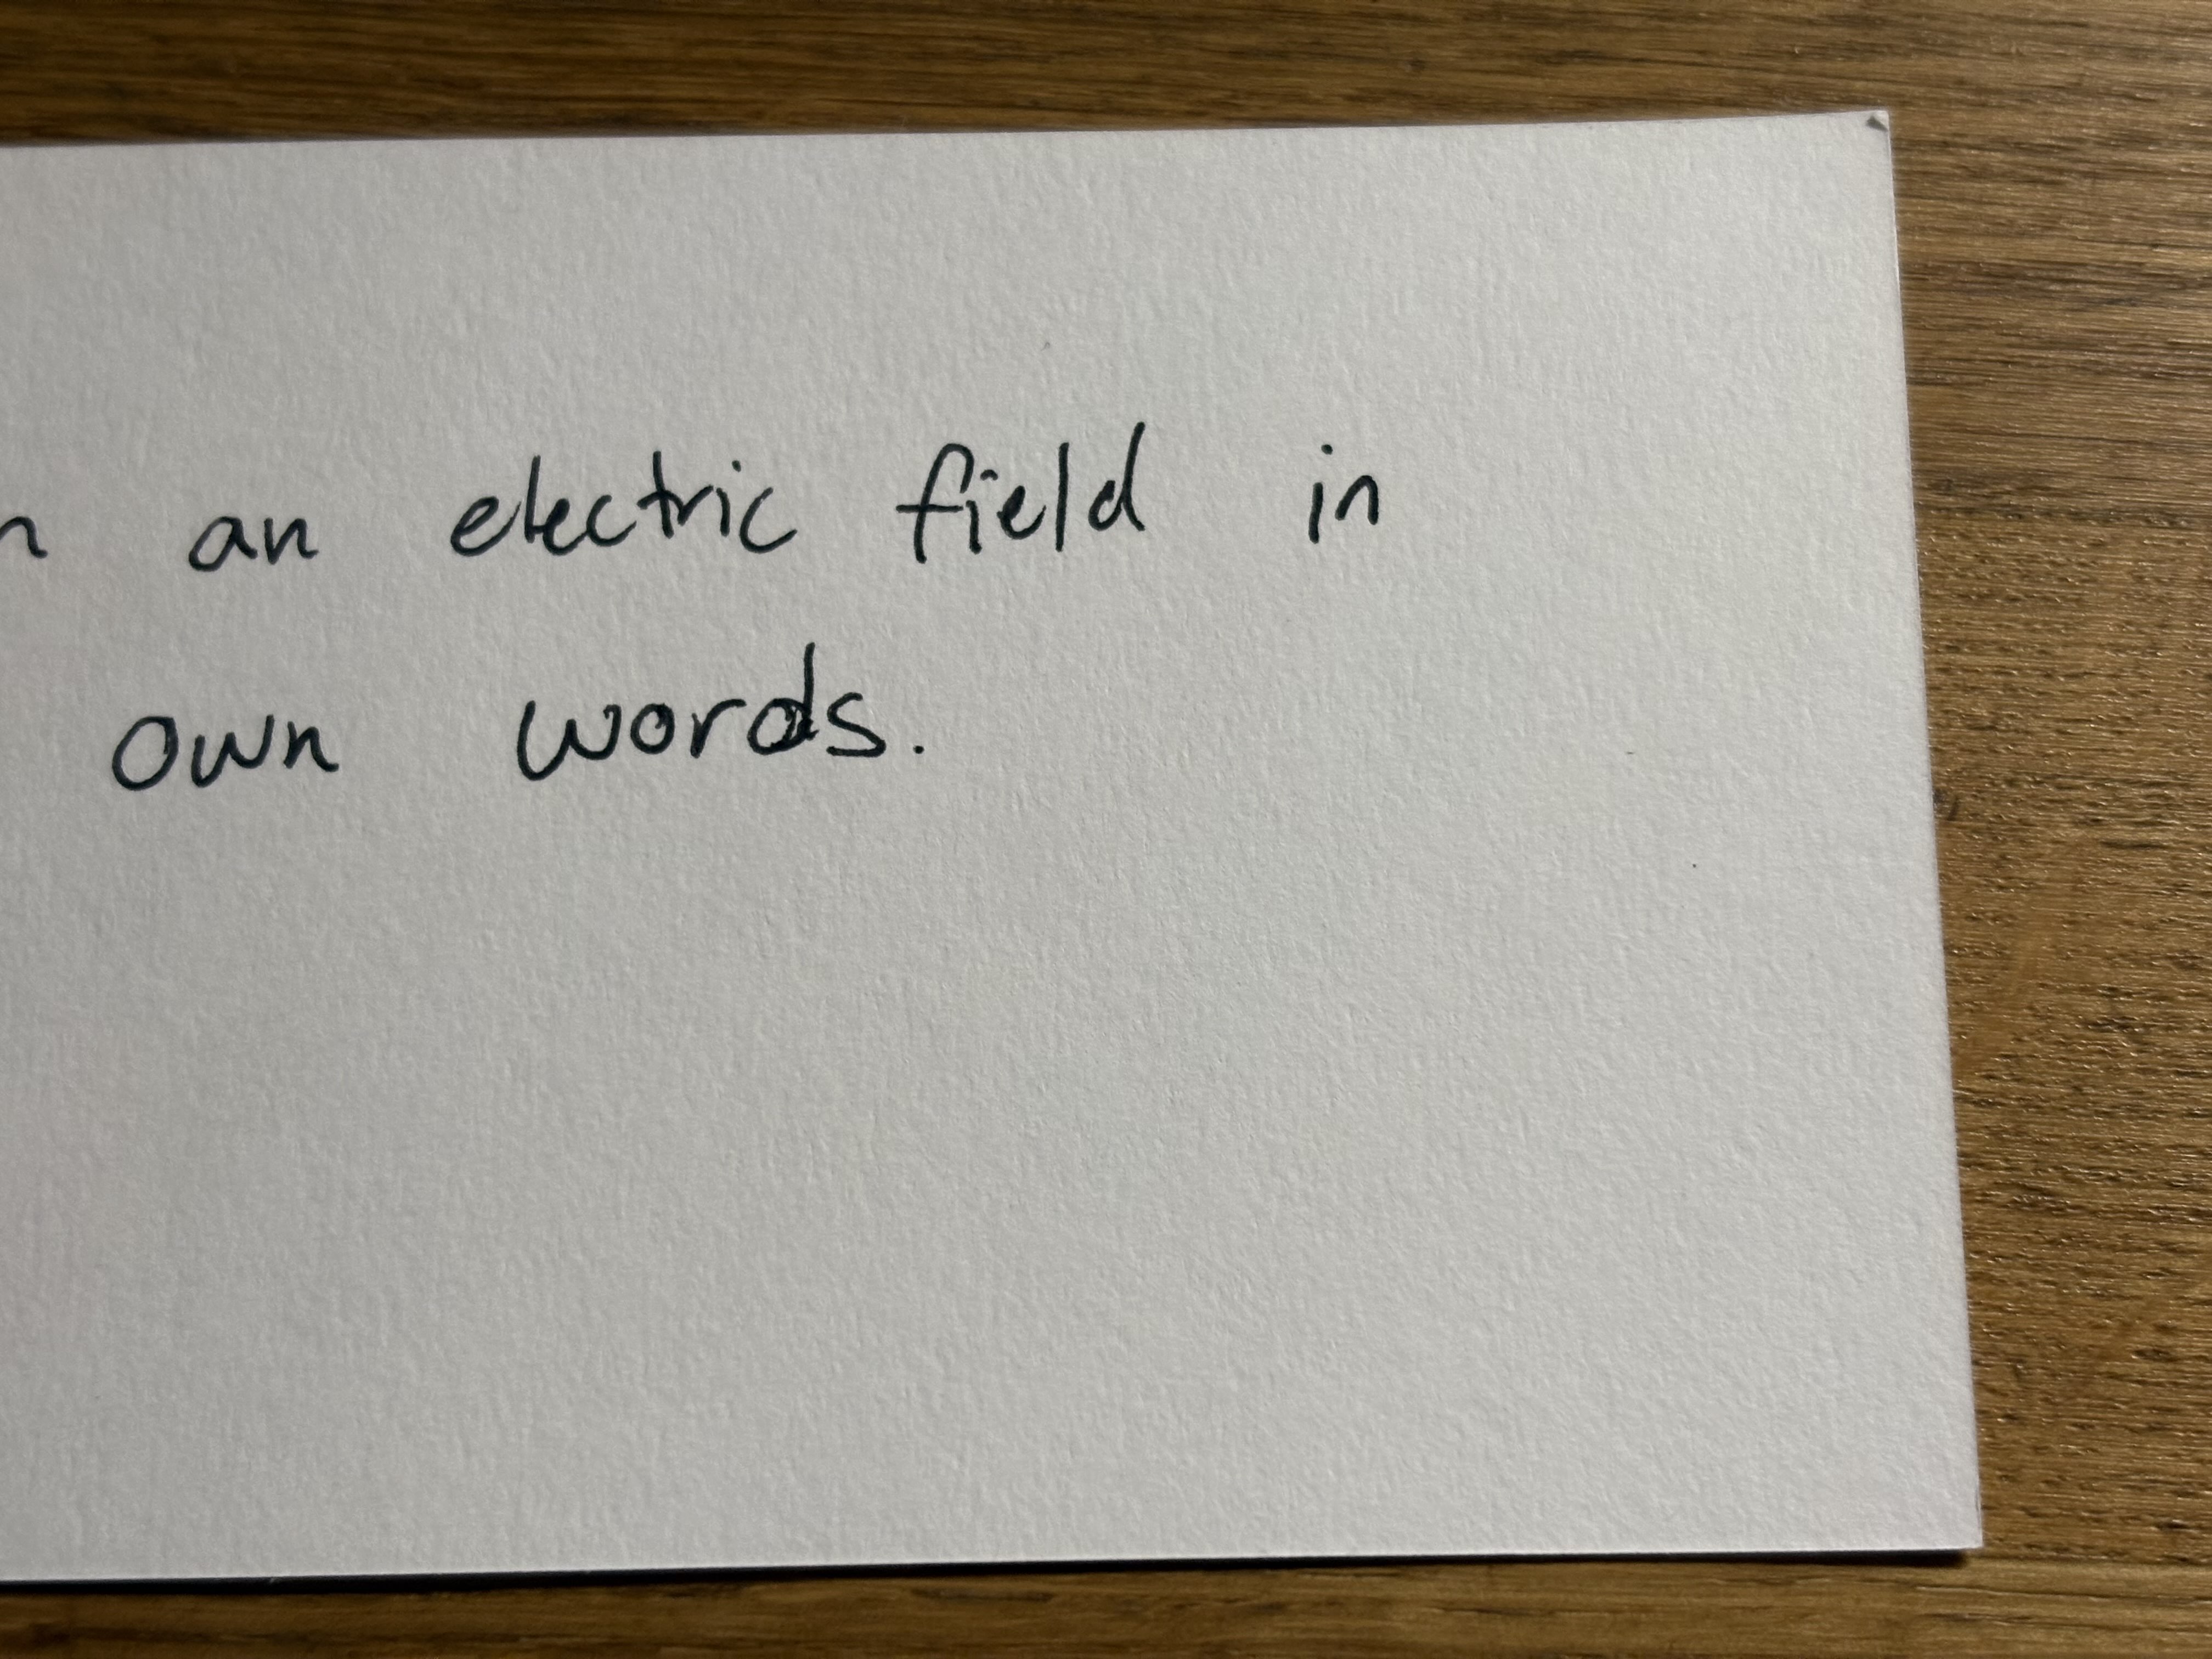 an electric field in
own words.